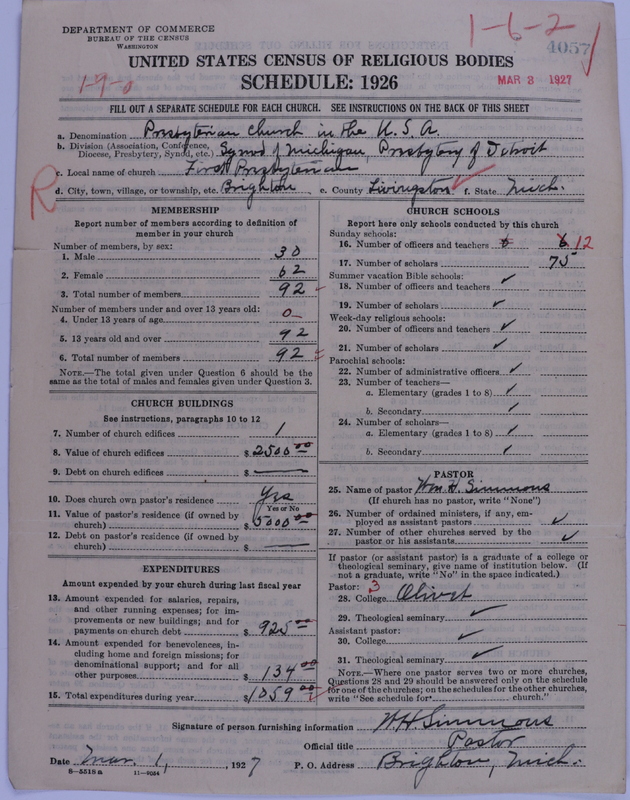 DEPARTMENT OF COMMERCE
BUREAU OF THE CENSUS
WASHINGTON
1-6-2
4057
1-9-0
UNITED STATES CENSUS OF RELIGIOUS BODIES
SCHEDULE: 1926
MAR 3 1927
FILL OUT A SEPARATE SCHEDULE FOR EACH CHURCH. SEE INSTRUCTIONS ON THE BACK OF THIS SHEET
a. Denomination Presbyterian Church in the U. S. A.
b. Division (Association, Conference, Diocese, Presbytery, Synod, etc.) Synod of Michigan, Presbytery of Detroit
c. Local name of church First Presbyterian
R
d. City, town, village, or township, etc. Brighton e. County Livingston f. State Mich.
MEMBERSHIP
Report number of members according to definition of
member in your church
Number of members, by sex:
1. Male 30
2. Female 62
3. Total number of members 92
Number of members under and over 13 years old:
4. Under 13 years of age 0
5. 13 years old and over 92
6. Total number of members 92
NOTE.—The total given under Question 6 should be the
same as the total of males and females given under Question 3.
CHURCH BUILDINGS
See instructions, paragraphs 10 to 12
7. Number of church edifices 1
8. Value of church edifices $ 2500 00
9. Debt on church edifices $ —
10. Does church own pastor's residence Yes
Yes or No
11. Value of pastor's residence (if owned by
church) $ 5000 00
12. Debt on pastor's residence (if owned by
church) $ —
EXPENDITURES
Amount expended by your church during last fiscal year
13. Amount expended for salaries, repairs,
and other running expenses; for im-
provements or new buildings; and for
payments on church debt $ 925 00
14. Amount expended for benevolences, in-
cluding home and foreign missions; for
denominational support; and for all
other purposes $ 134 00
15. Total expenditures during year $ 1059 00
CHURCH SCHOOLS
Report here only schools conducted by this church
Sunday schools:
16. Number of officers and teachers 6 6 12
17. Number of scholars 75
Summer vacation Bible schools:
18. Number of officers and teachers ✓
19. Number of scholars ✓
Week-day religious schools:
20. Number of officers and teachers ✓
21. Number of scholars ✓
Parochial schools:
22. Number of administrative officers ✓
23. Number of teachers—
a. Elementary (grades 1 to 8) ✓
b. Secondary ✓
24. Number of scholars—
a. Elementary (grades 1 to 8) ✓
b. Secondary ✓
PASTOR
25. Name of pastor Wm. H. Simmons
(If church has no pastor, write "None")
26. Number of ordained ministers, if any, em-
ployed as assistant pastors ✓
27. Number of other churches served by the
pastor or his assistants ✓
If pastor (or assistant pastor) is a graduate of a college or
theological seminary, give name of institution below. (If
not a graduate, write "No" in the space indicated.)
Pastor: 3
28. College Olivet
29. Theological seminary ✓
Assistant pastor:
30. College ✓
31. Theological seminary ✓
NOTE.—Where one pastor serves two or more churches,
Questions 28 and 29 should be answered only on the schedule
for one of the churches; on the schedules for the other churches,
write "See schedule for church."
Signature of person furnishing information W H Simmons
Official title Pastor
Date Mar. 1, 1927 P. O. Address Brighton, Mich.
8—5518 a 11—9054